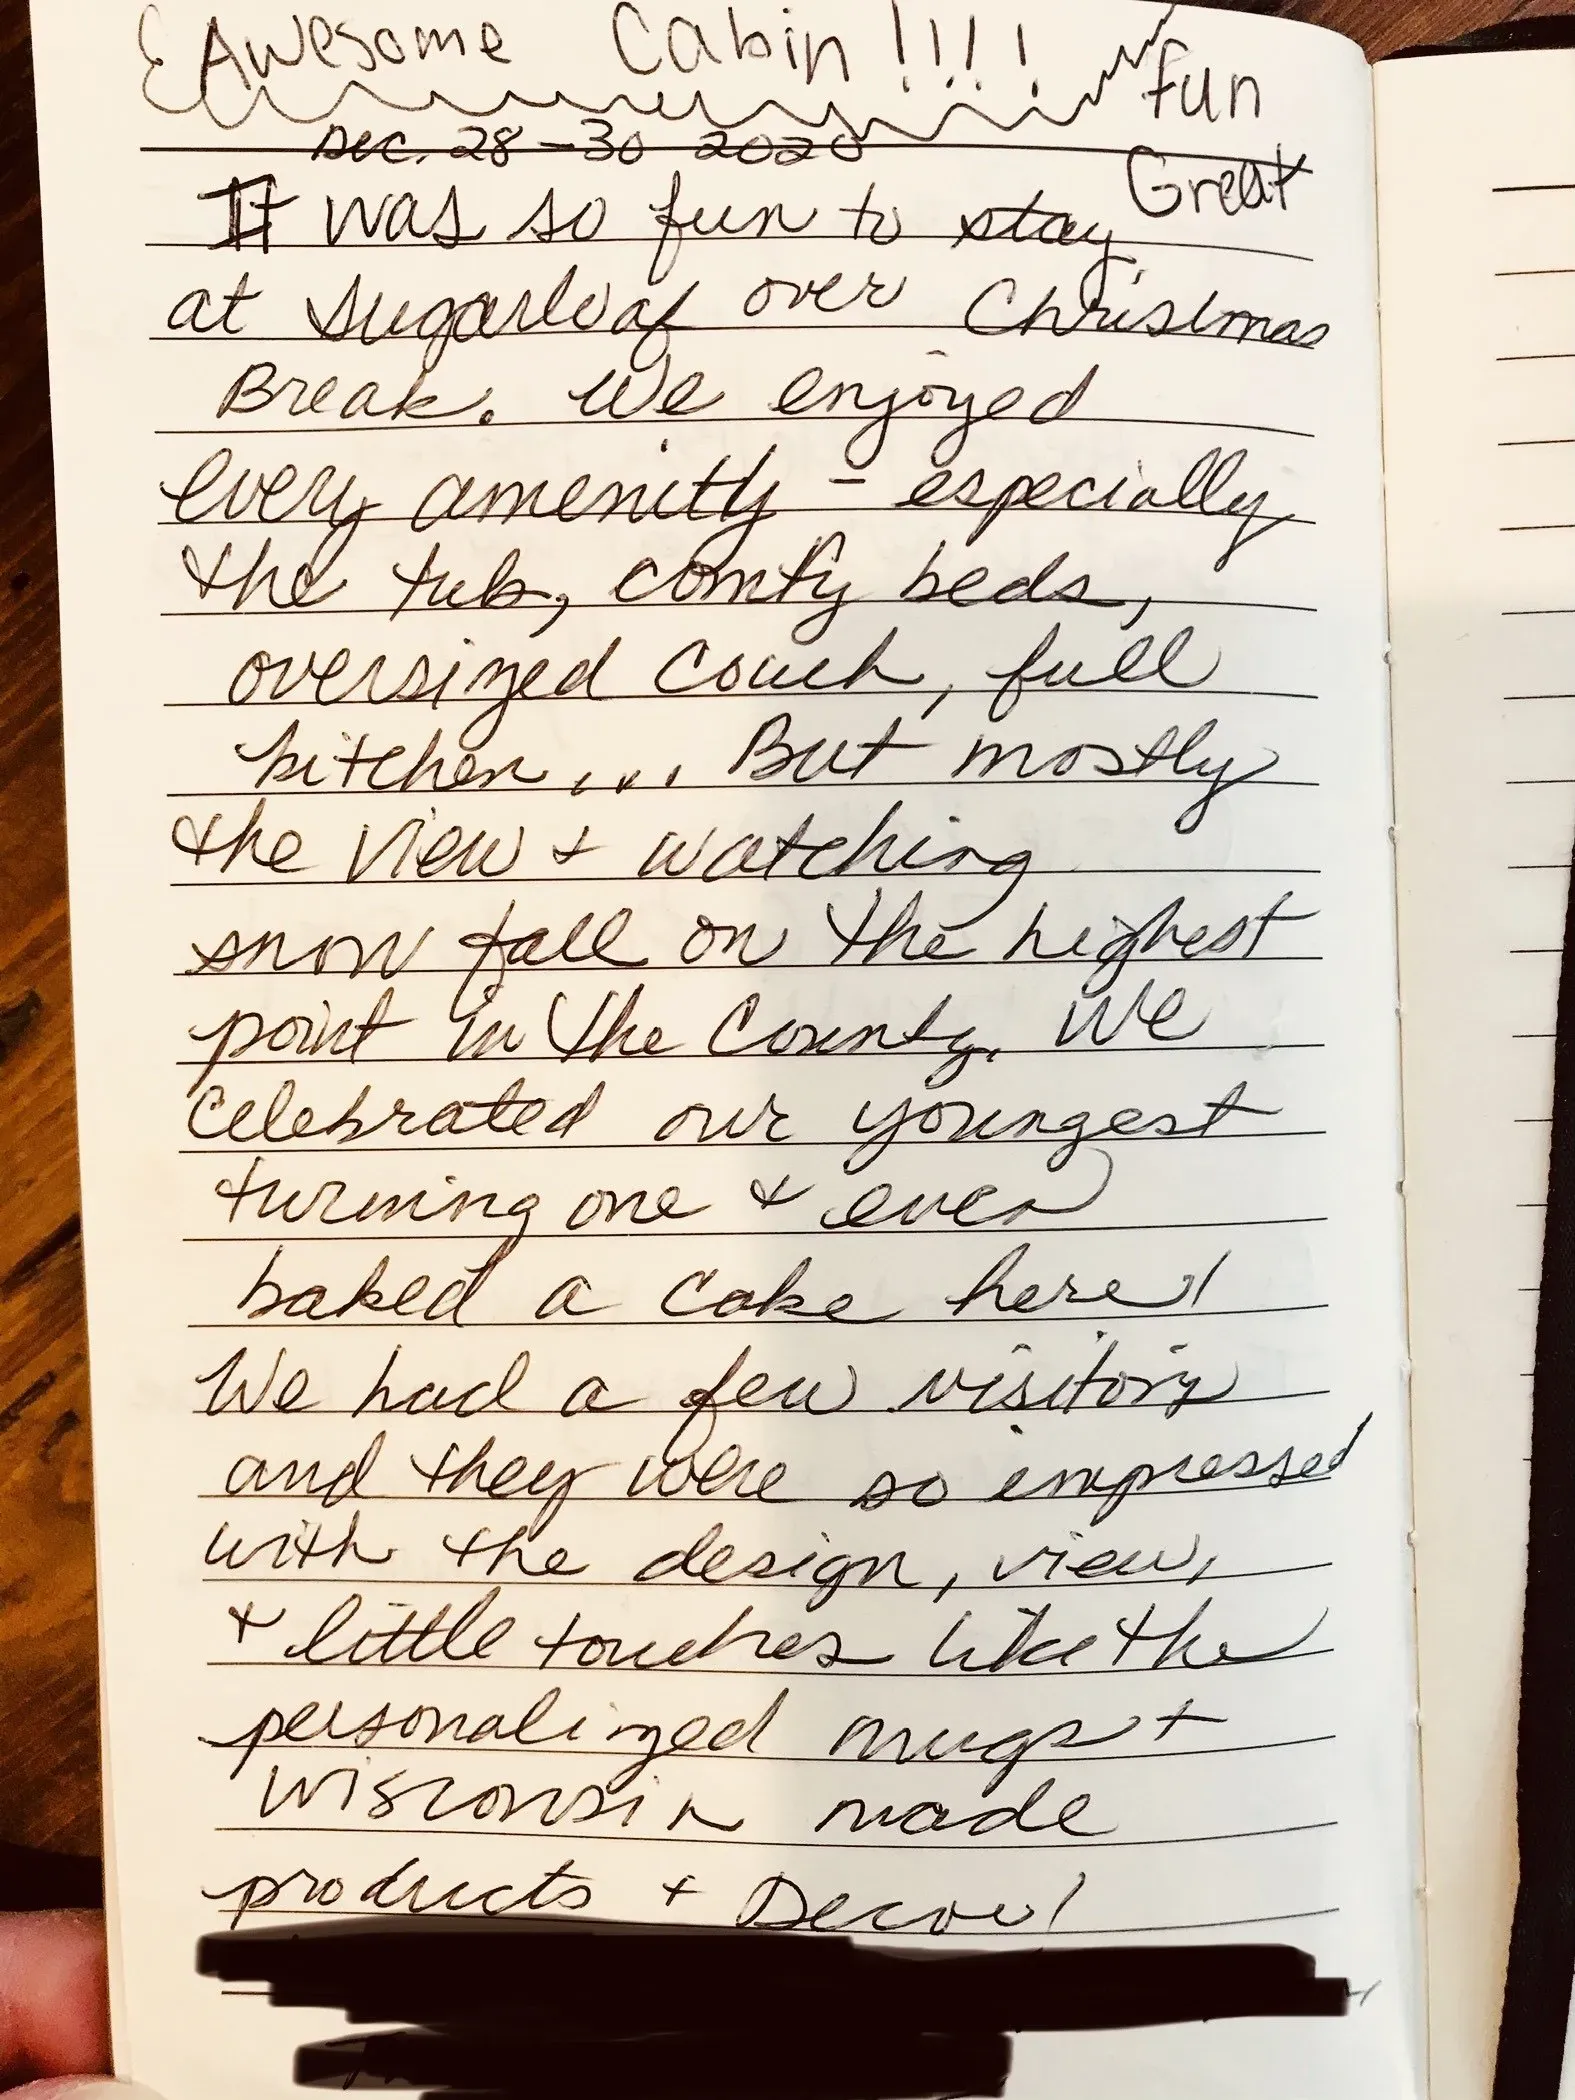 Awesome Cabin!!!!
Fun
Dec. 28-30 2020
Great
It was so fun to stay
at Sugarloaf over Christmas
Break. We enjoyed
every amenity - especially
the tub, comfy beds,
oversized couch, full
kitchen... But mostly
the view + watching
snow fall on the highest
point in the County. We
celebrated our youngest
turning one + even
baked a cake here!
We had a few visitors
and they were so impressed
with the design, view,
+ little touches like the
personalized mugs +
Wisconsin made
products + Decor!